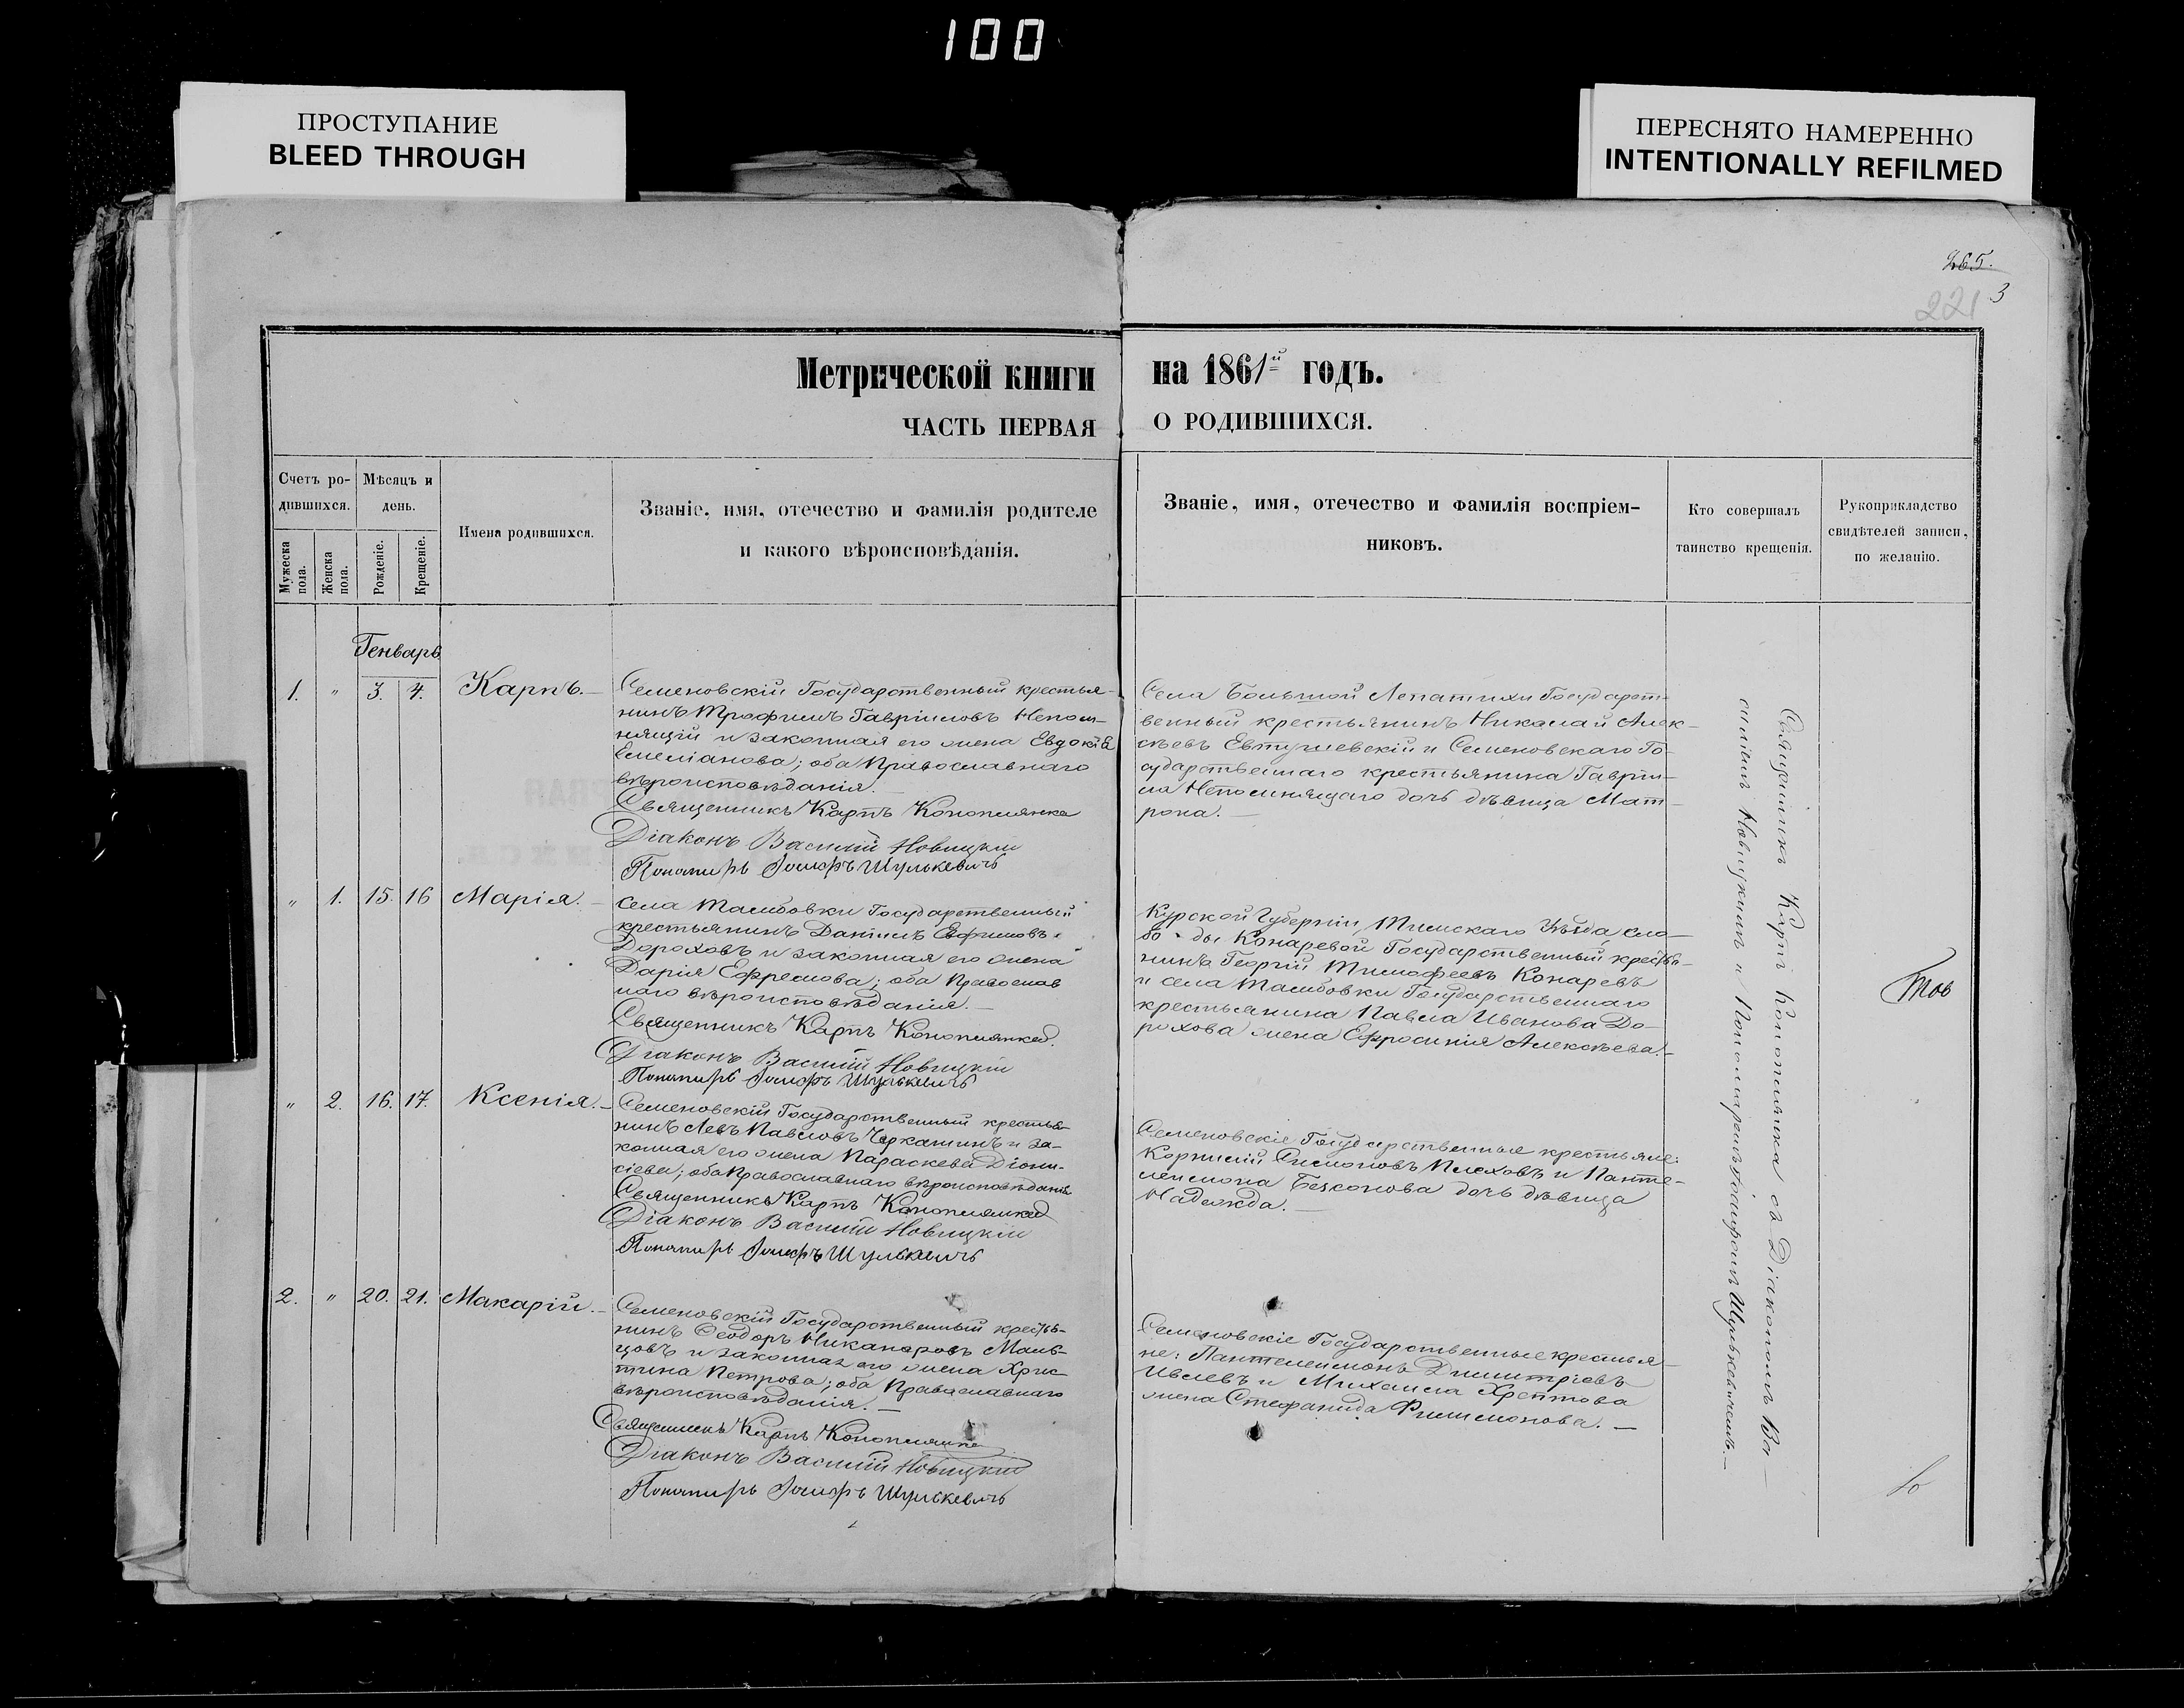 100
ПРОСТУПАНИЕ
BLEED THROUGH
ПЕРЕСНЯТО НАМЕРЕННО
INTENTIONALLY REFILMED
265.
221 3
Метрической книги на 1861й годъ.
ЧАСТЬ ПЕРВАЯ О РОДИВШИХСЯ.
Счетъ ро-
дившихся.
Мужеска
пола.
Женска
пола.
Мѣсяцъ и
день.
Рожденіе.
Крещеніе.
Имена родившихся.
Званіе, имя, отечество и фамилія родителе
и какого вѣроисповѣданія.
Званіе, имя, отечество и фамилія воспріем-
никовъ.
Кто совершалъ
таинство крещенія.
Рукоприкладство
свидѣтелей записи,
по желанію.
Генварь
1. " 3. 4. Карпъ.
Семеновскій Государственный крестья-
нинъ Трофимъ Гавріиловъ Непом-
нящій и законная его жена Евдокія
Емеліанова; оба Православнаго
вѣроисповѣданія.
Священникъ Карпъ Конопляка
Діаконъ Василій Новицкій
Пономарь Іосифъ Шулькевичъ
Села Большой Лепатихи Государст-
венный крестьянинъ Николай Алек-
сѣевъ Евтушевскій и Семеновскаго Го-
сударственнаго крестьянина Гаврі-
ила Непомнящаго дочь дѣвица Мат-
рона.
" 1. 15. 16 Марія.
села Тамбовки Государственный
крестьянинъ Даніилъ Ефимовъ
Дороховъ и законная его жена
Дарія Ефремова; оба Православ
наго вѣроисповѣданія.
Священникъ Карпъ Конопляка
Діаконъ Василій Новицкій
Пономарь Іосифъ Шулькевичъ
Курской Губерніи, Тимскаго Уѣзда, сло-
бо-ды Конаревой Государственный крестья-
нинъ Георгій Тимофеевъ Конаревъ
и села Тамбовки Государственнаго
крестьянина Павла Иванова До-
рохова жена Ефросинія Алексѣева.
" 2. 16. 17. Ксенія.
Семеновскій Государственный крестья-
нинъ Левъ Павловъ Черкашинъ и за-
конная его жена Параскева Діони-
сіева; оба Православнаго вѣроисповѣданія
Священникъ Карпъ Конопляка
Діаконъ Василій Новицкій
Пономарь Іосифъ Шулькевичъ
Семеновскіе Государственные крестьяне:
Корнилій Плеховъ и Панте-
леимона Безконова дочь дѣвица
Надежда.
2. " 20. 21. Макарій.
Семеновскій Государственный крестья-
нинъ Ѳеодоръ Никаноровъ Маль-
цовъ и законная его жена Хрис-
тина Петрова; оба Православнаго
вѣроисповѣданія.
Священникъ Карпъ Конопляка
Діаконъ Василій Новицкій
Пономарь Іосифъ Шулькевичъ
Семеновскіе Государственные крестья-
не: Пантелеимонъ Димитріевъ
Ивлевъ и Михаила Хрептова
жена Стефанида Филимонова.
Священникъ Карпъ Конопляка съ Діакономъ Ва-
силіемъ Новицкимъ и Пономаремъ Іосифомъ Шулькевичемъ.